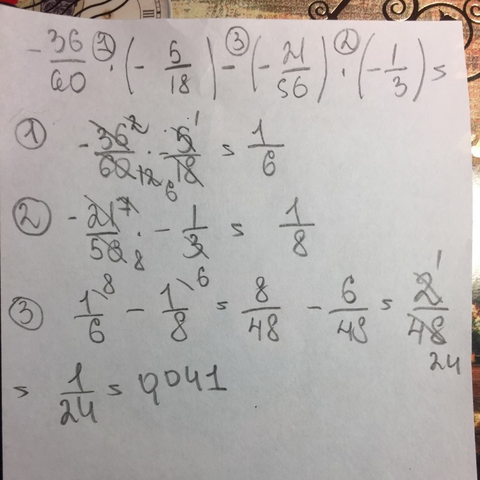 -36/60 ①· (-5/18) -③ (-21/56) ·② (-1/3) =
① -36²/60 12 · 5¹/18 6 = 1/6
② -21⁷/56 8 · -1/3 = 1/8
③ 1\8/6 - 1\6/8 = 8/48 - 6/48 = 2¹/48 24
= 1/24 = 0,041